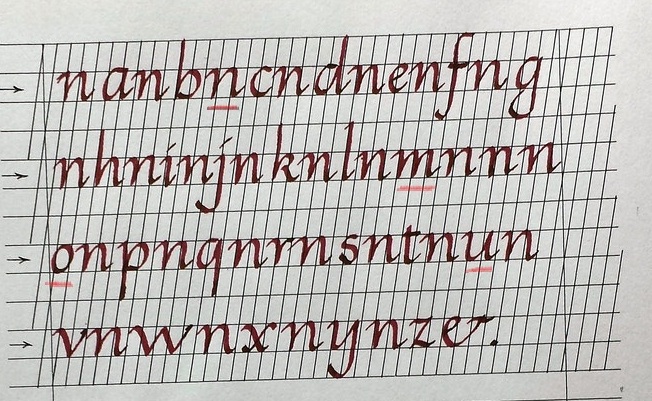 nanbncndnenfng
nhninjnknlnmnnn
onpnqnrnsntnun
vnwnxnynz&.